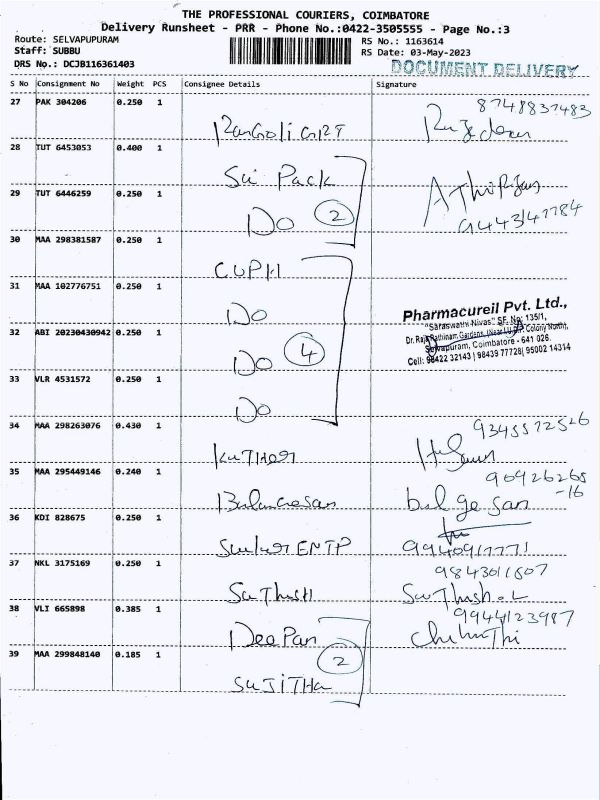 THE PROFESSIONAL COURIERS, COIMBATORE
Delivery Runsheet - PRR - Phone No.:0422-3505555 - Page No.:3
Route: SELVAPUPURAM RS No.: 1163614
Staff: SUBBU RS Date: 03-May-2023
DRS No.: DCJB116361403 DOCUMENT DELIVERY
S No Consignment No Weight PCS Consignee Details Signature
27 PAK 304206 0.250 1
8748837483
28 TUT 6453053 0.400 1
Sri Pack
29 TUT 6446259 0.250 1
DO 2
30 MAA 298381587 0.250 1
CUPH
31 MAA 102776751 0.250 1
DO
Pharmacureil Pvt. Ltd.,
"Saraswathi Nivas" SF. No: 135/1,
32 ABI 20230430942 0.250 1
Selvapuram, Coimbatore - 641 026.
DO 4
Cell: 98422 32143 | 98439 77728 | 95002 14314
33 VLR 4531572 0.250 1
DO
34 MAA 298263076 0.430 1
35 MAA 295449146 0.240 1
90926265
-16
bul ge san
36 KDI 828675 0.250 1
37 NKL 3175169 0.250 1
SaThisH
38 VLI 665898 0.385 1
9944123987
DeePan
39 MAA 299848140 0.185 1
2
SuJiTHa